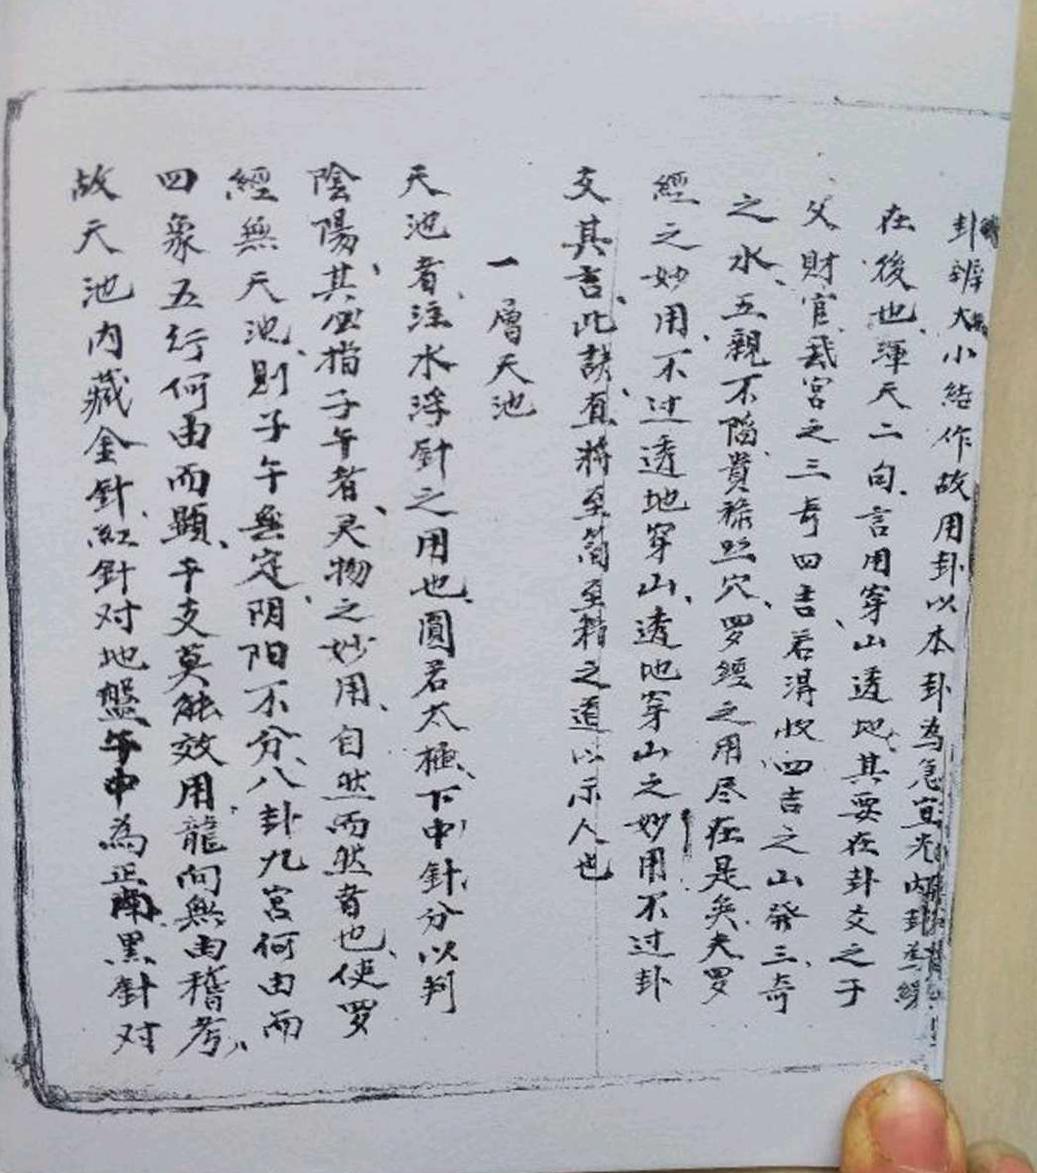 卦辨大小結作故用卦以本卦為急宜先内卦
在後也渾天二句言用穿山透地其要在卦爻之子
父財官武宮之三奇四吉若得收四吉之山發三奇
之水五親不陷貴祿照穴罗經之用尽在是矣夫罗
經之妙用不过透地穿山透地穿山之妙用不过卦
爻其言此訣直將至简至精之道以示人也
一層天池
天池者注水浮針之用也圓若太極下中針分以判
陰陽其必指子午者灵物之妙用自然而然者也使罗
經無天池則子午無定阴阳不分八卦九宮何由而
四象五行何由而顯干支莫能效用龍向無由稽考
故天池内藏金針紅針对地盤午中為正南黑針对